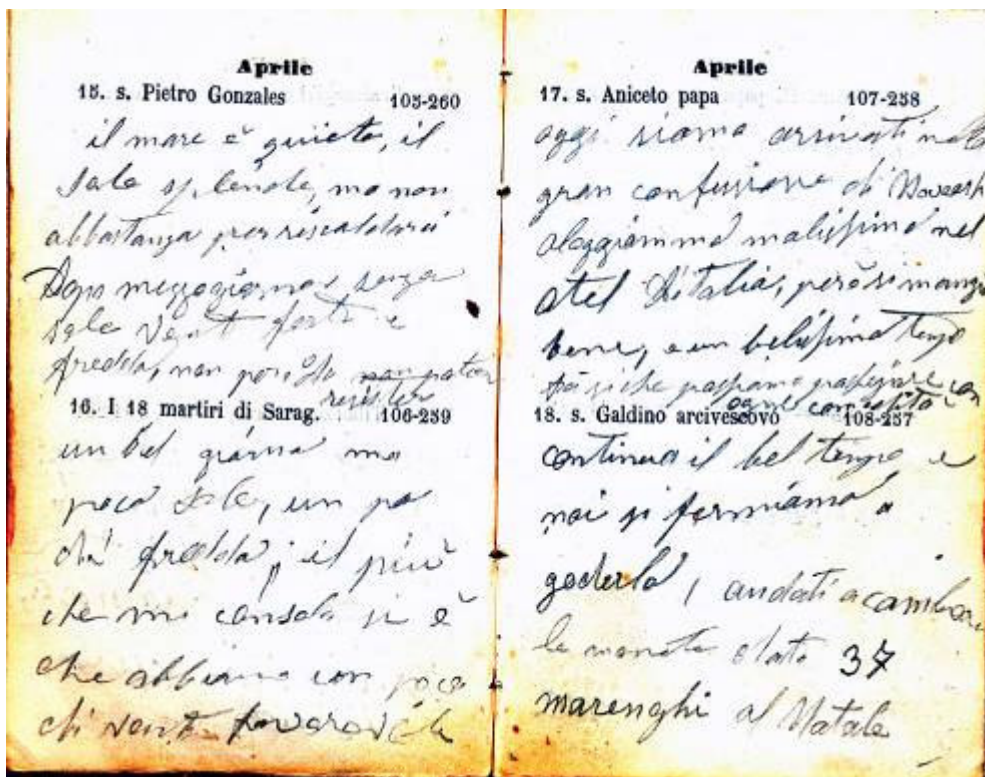 Aprile
15. s. Pietro Gonzales 105-260
il mare è quieto, il
Sole splende, ma non
abbastanza per riscaldarci
Dopo mezzogiorno senza
sole vent forte e
fredda, non
resister
16. I 18 martiri di Sarag. 106-259
un bel giorno ma
poco Sole, un po
di fredda; il più
che mi consola si è
che abbiamo un poco
di vento favorevole
Aprile
17. s. Aniceto papa 107-258
oggi siamo arrivati nella
gran confusione di
aloggiammo malissimo nel
otel d'Italia, però si mangia
bene, e un belissimo tempo
passiamo passegiare con
ogni comodità
18. s. Galdino arcivescovo 108-257
continua il bel tempo e
noi si fermiamo a
goderlo, andati a cambiare
la moneta dato 37
marenghi al Natale